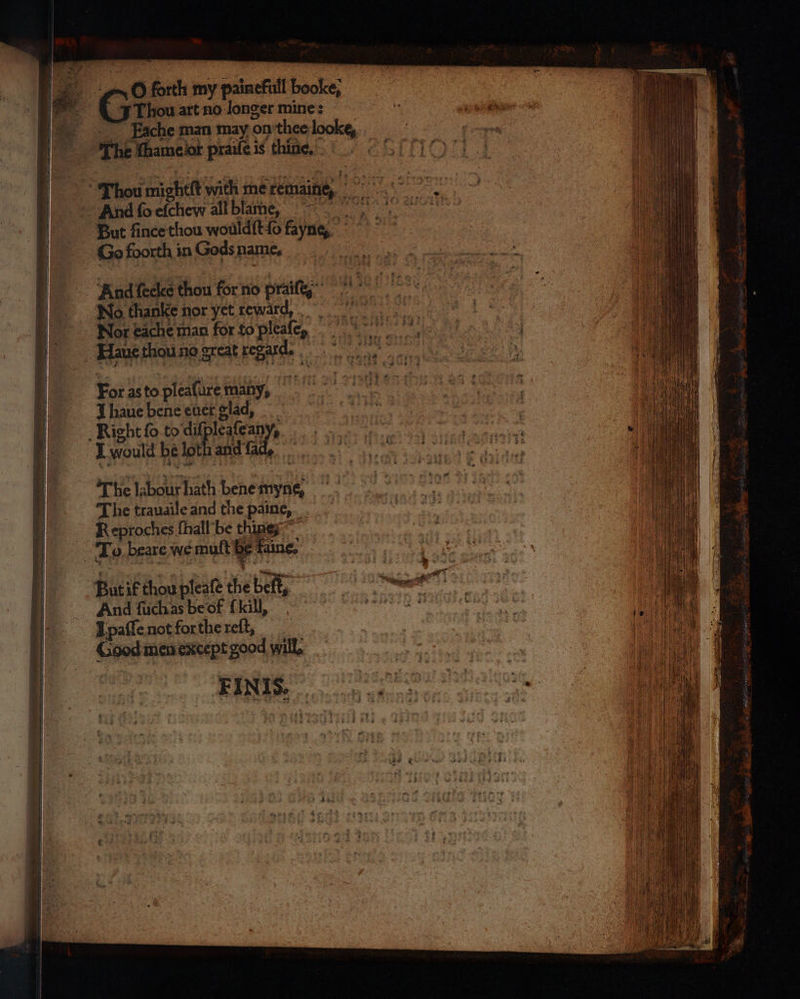 GO forth my painefull booke,
Thou art no longer mine:
Eache man may on thee looke,
The ſhame or praiſe is thine.
Thou mightſt with me remaine,
And ſo eſchew all blame,
But ſince thou wouldſt ſo fayne,
Go foorth in Gods name.
And ſeeke thou for no praiſe,
No thanke nor yet reward,
Nor eache man for to pleaſe,
Haue thou no great regard.
For as to pleaſure many,
I haue bene euer glad,
Right ſo to diſpleaſe any,
I would be loth and ſad.
The labour hath bene myne,
The trauaile and the paine,
Reproches ſhall be thine,
To beare we muſt be faine.
But if thou pleaſe the beſt,
And ſuch as be of ſkill,
I paſſe not for the reſt,
Good men except good will.
FINIS.